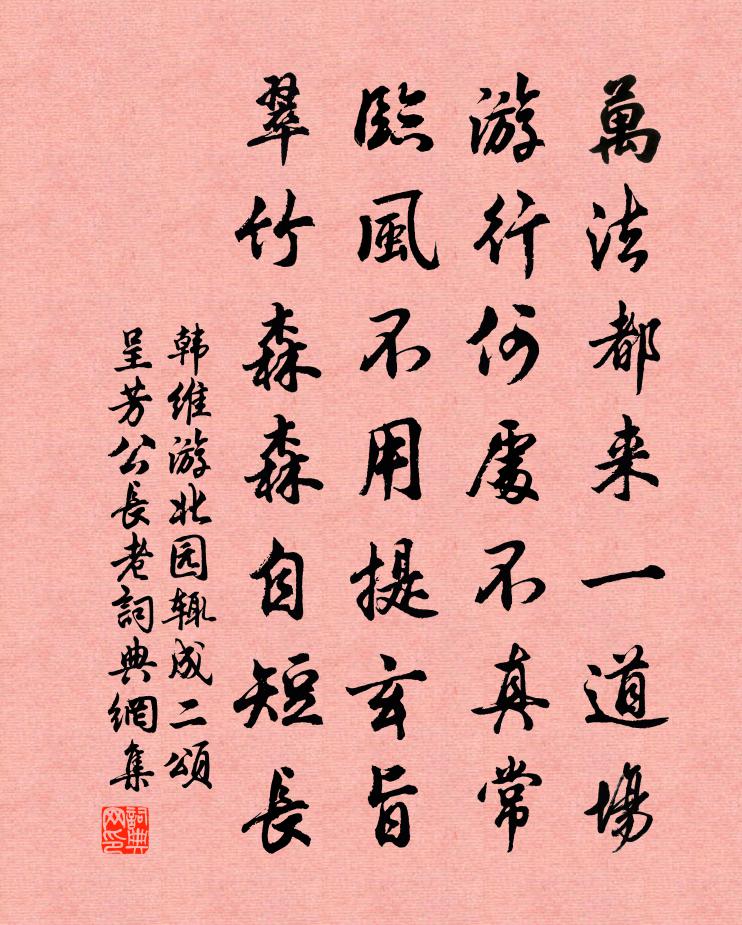 萬法都来一道場
游行何處不真常
臨風不用提玄旨
翠竹森森自短長
韩維游北园辄成二頌
呈芳公長老詞典網集
詞典网印